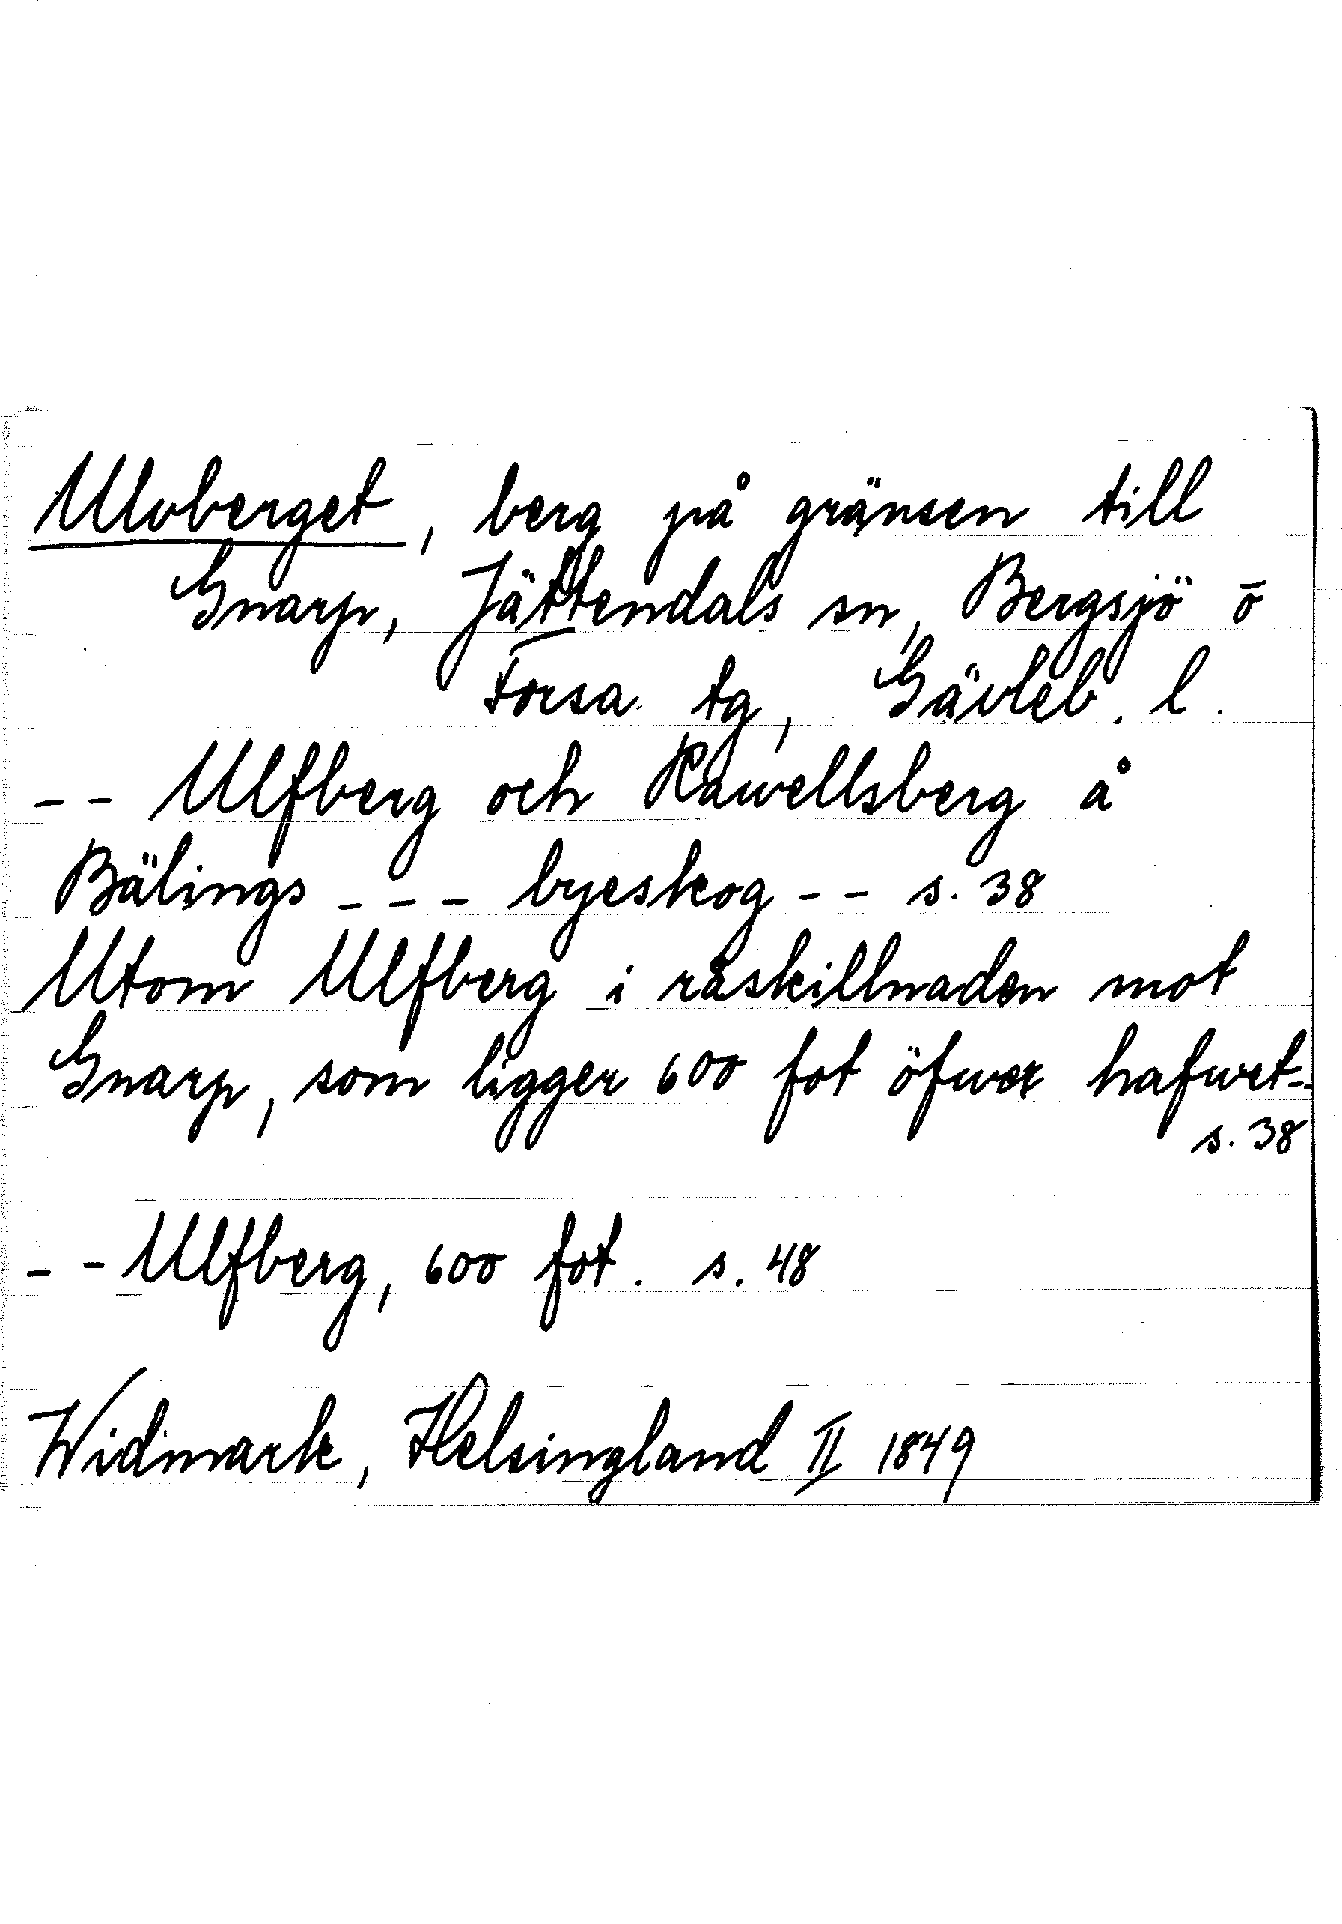 Ulvberget, berg på gränsen till
Gnarp, Jättendals sn, Bergsjö o
Forsa tg, Gävleb. l.
-- Ulfberg och Rawellsberg å
Bälings --- byeskog -- s. 38
Utom Ulfberg i råskillnaden mot
Gnarp, som ligger 600 fot öfwer hafwet--
s. 38
-- Ulfberg, 600 fot. s. 48
Widmark, Helsingland II 1849